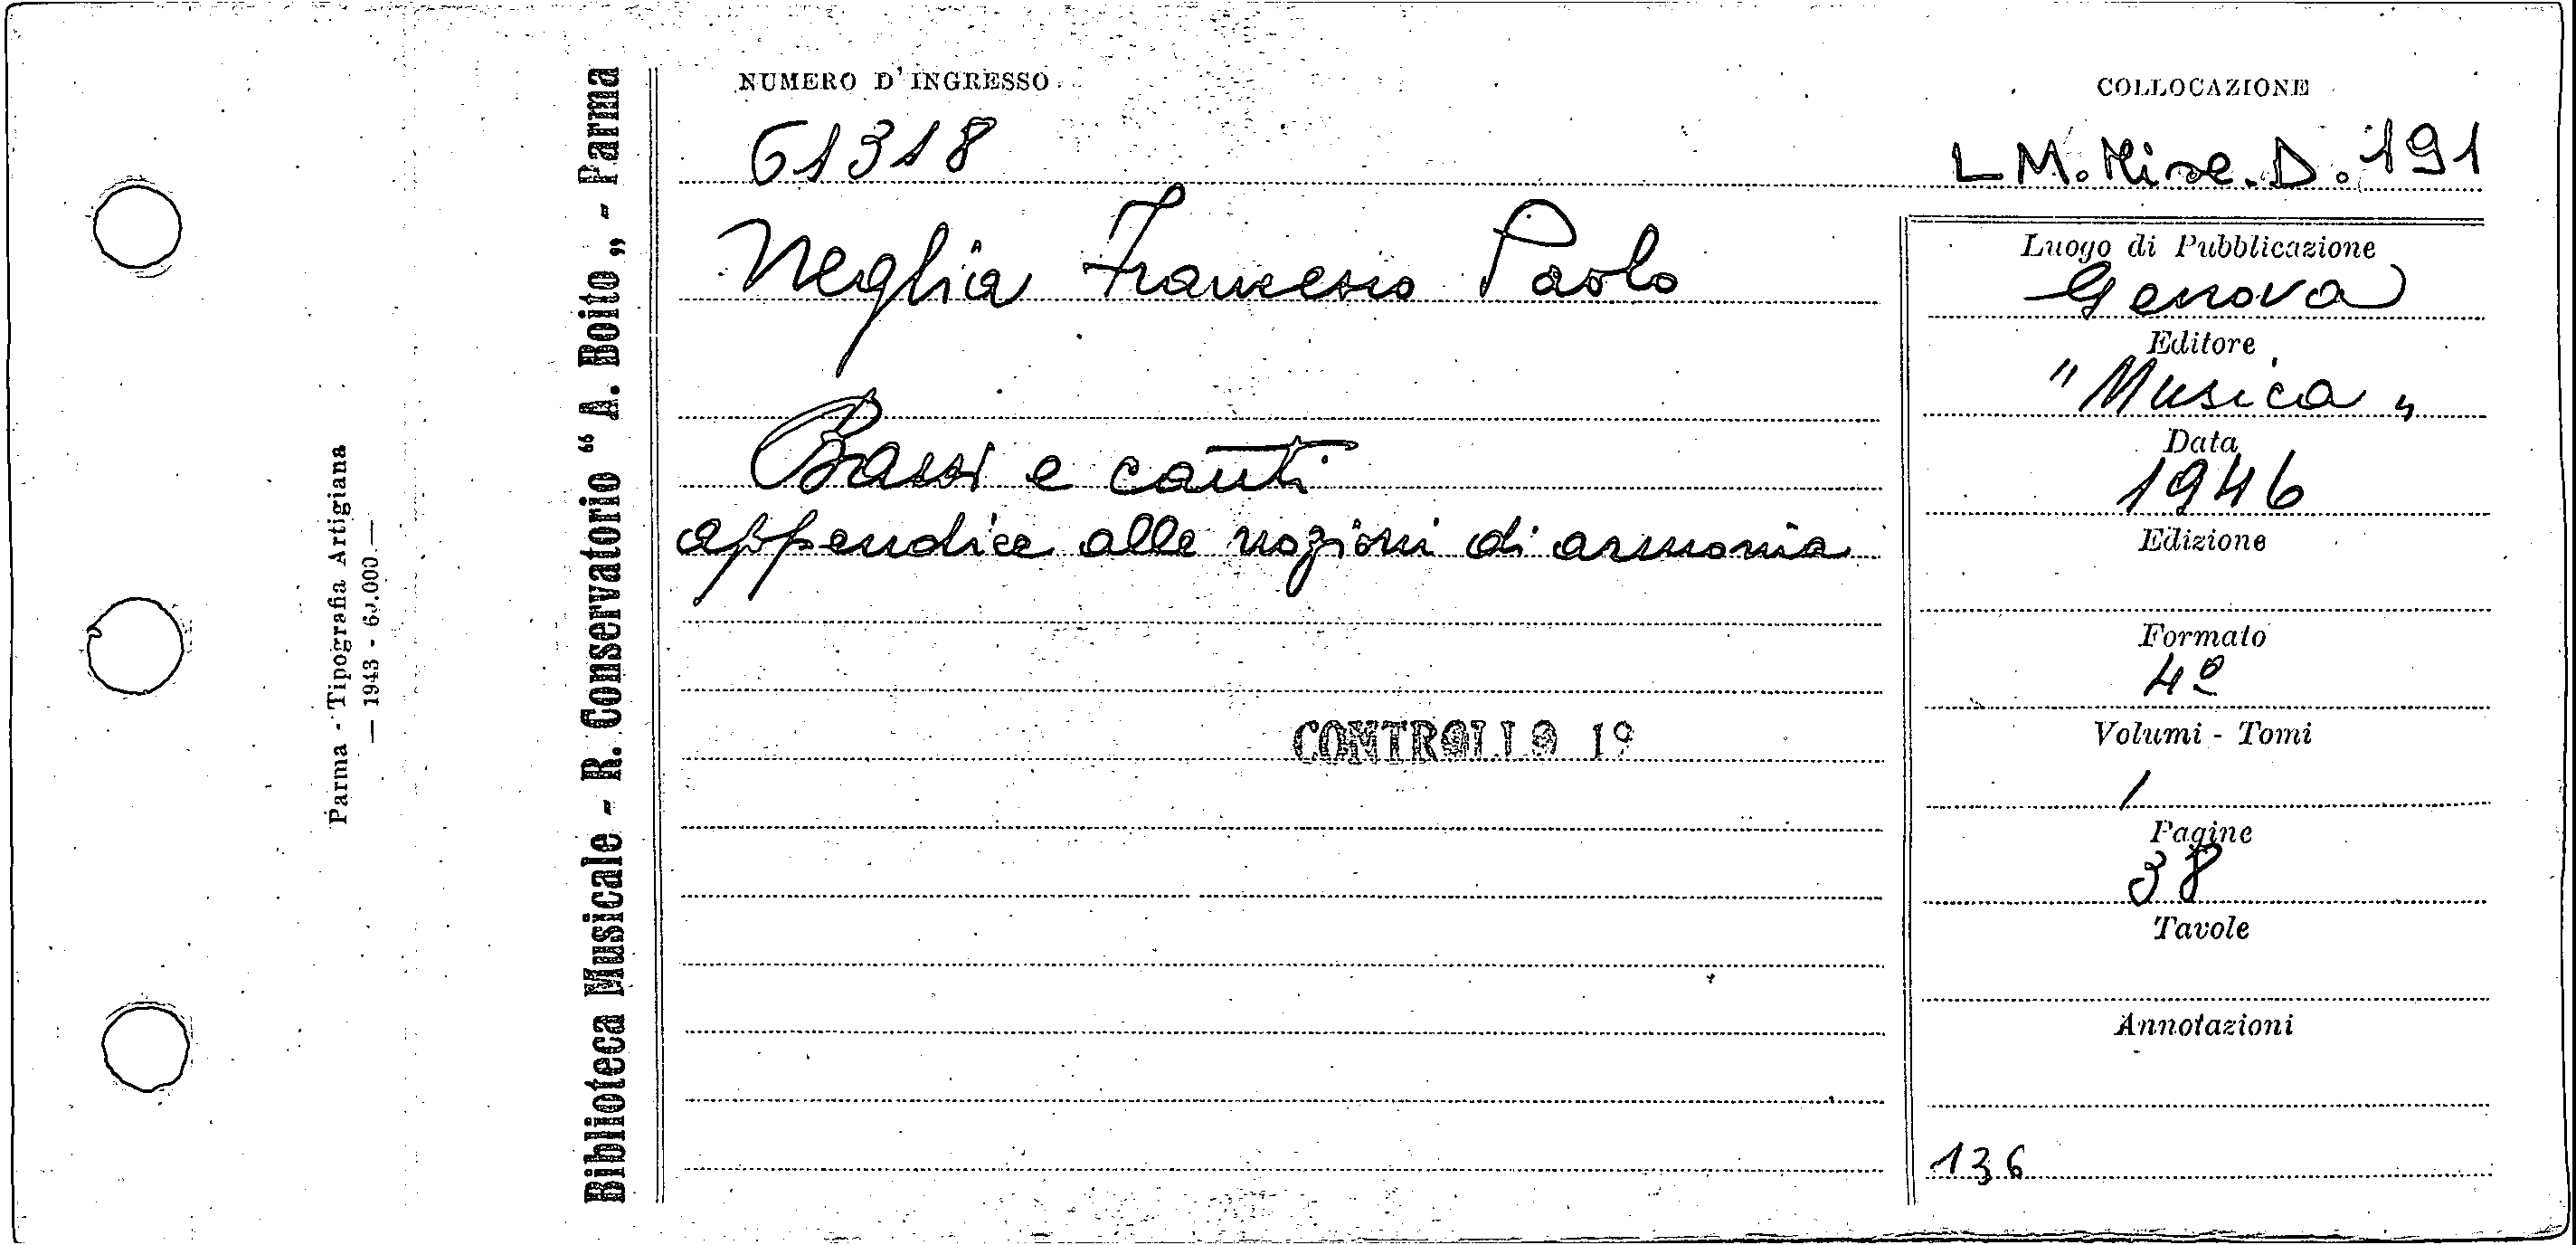 Parma - Tipografia Artigiana
— 1943 - 60.000 —
Biblioteca Musicale - R. Conservatorio “ A. Boito „ - Parma
NUMERO D'INGRESSO
61318
Neglia Francesco Paolo
Bassi e canti
appendice alle nozioni di armonia
CONTROLLO 1º
COLLOCAZIONE
L M. Misc. D. 191
Luogo di Pubblicazione
Genova
Editore
"Musica„
Data
1946
Edizione
Formato
4º
Volumi - Tomi
1
Pagine
38
Tavole
Annotazioni
136